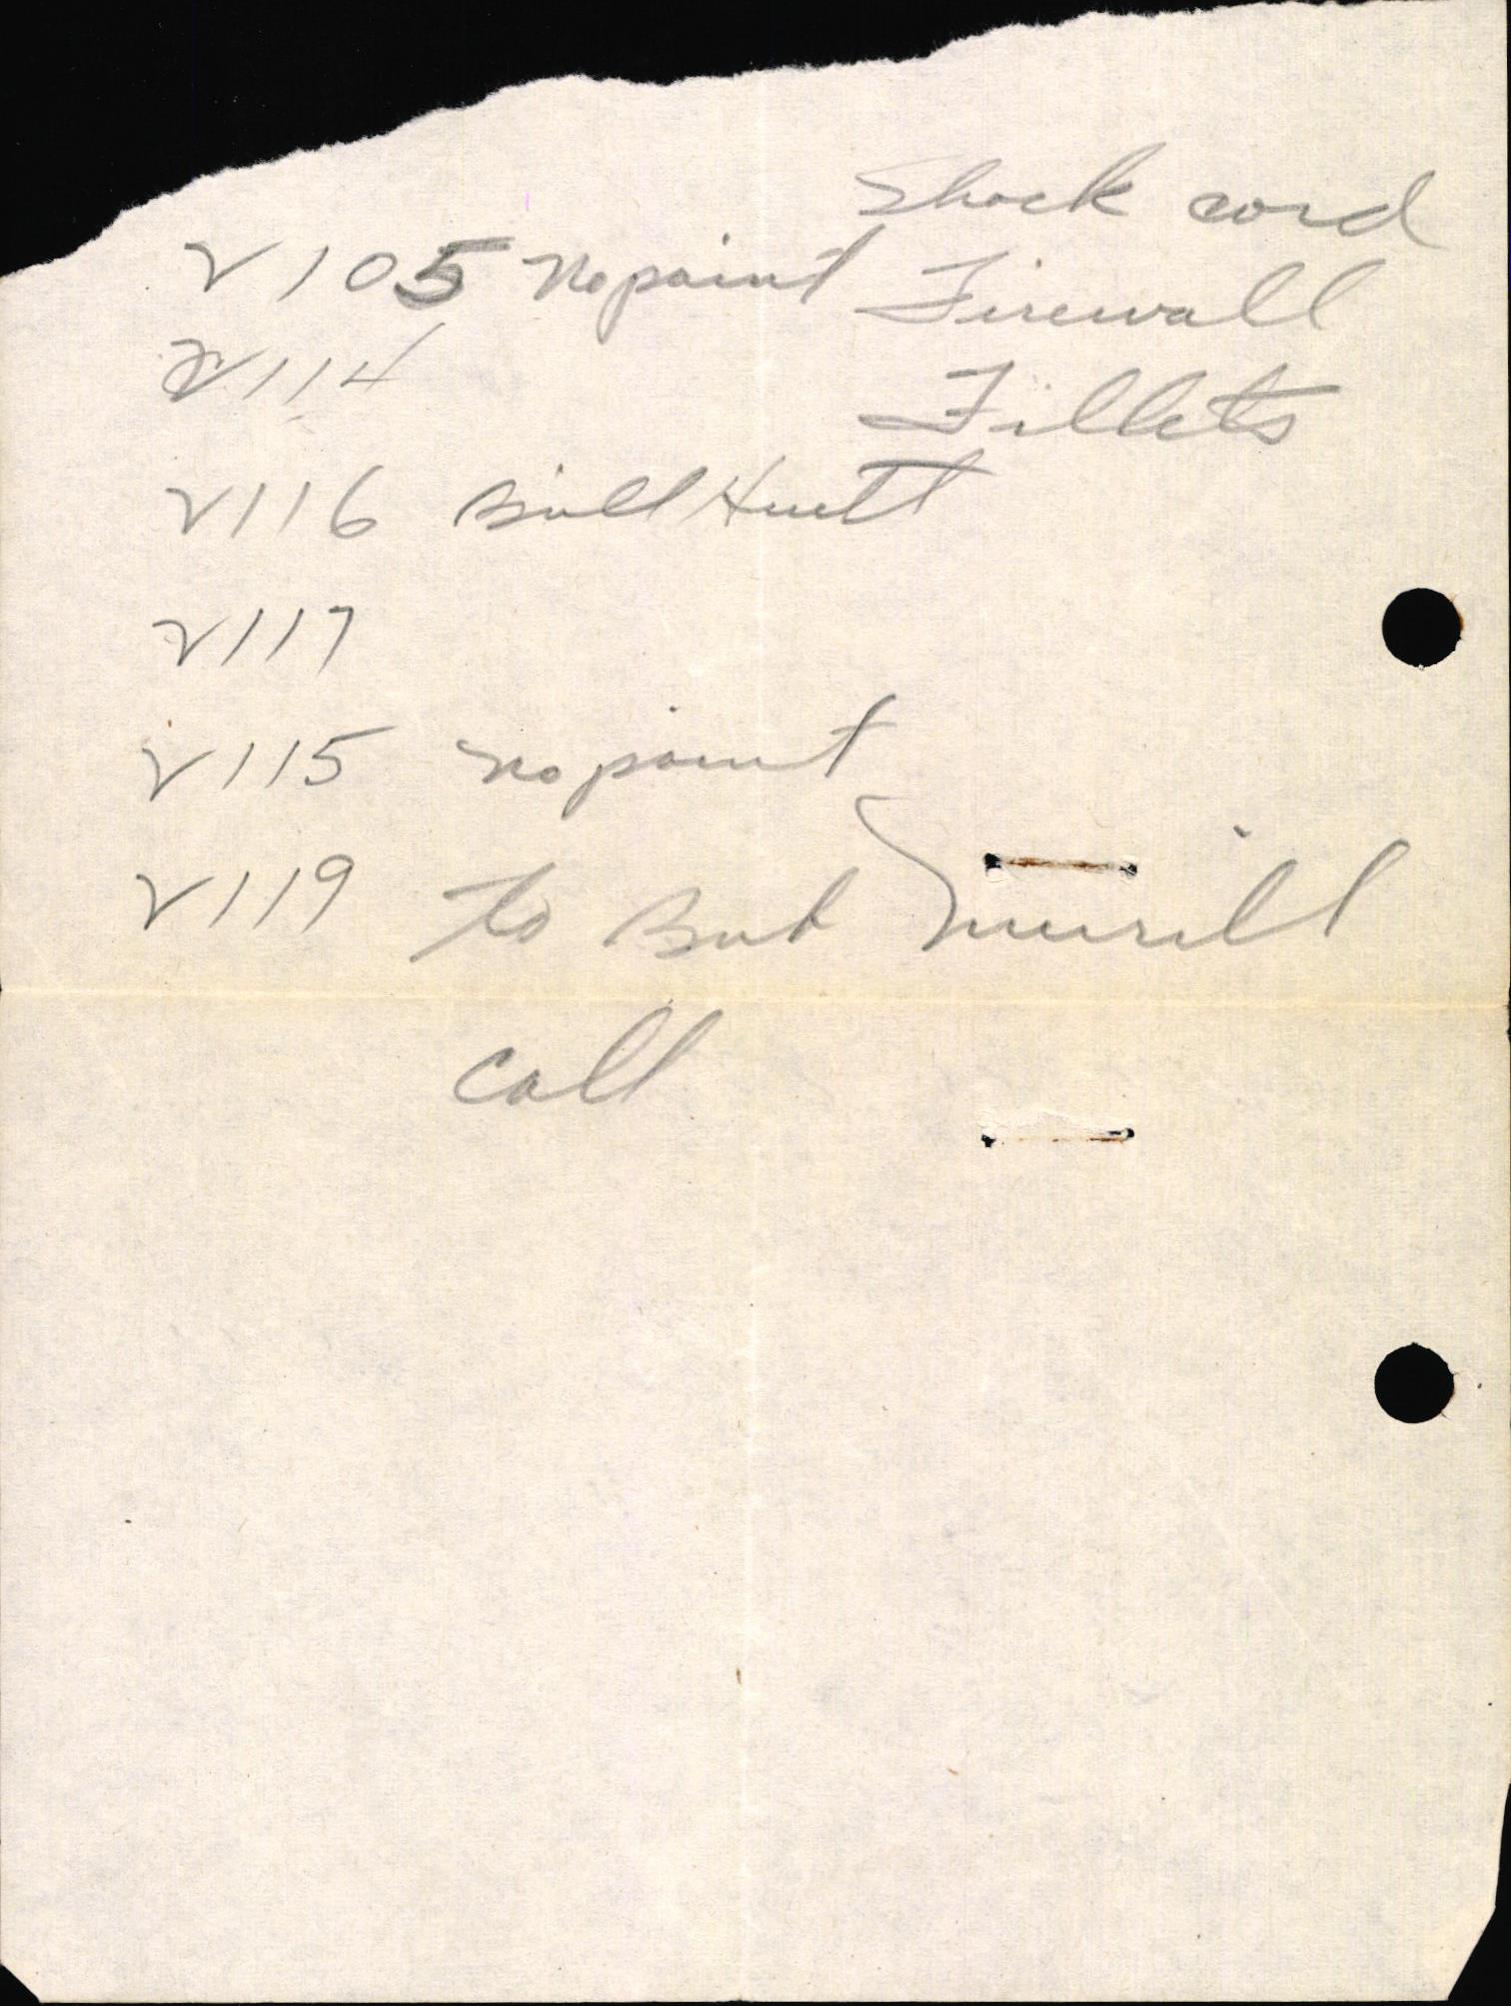 Shock cord
V 105 No paint Firewall
V114
Fillets
V116 Bill Huett
V117
V115 no paint
V119 to Bub Murrill
call